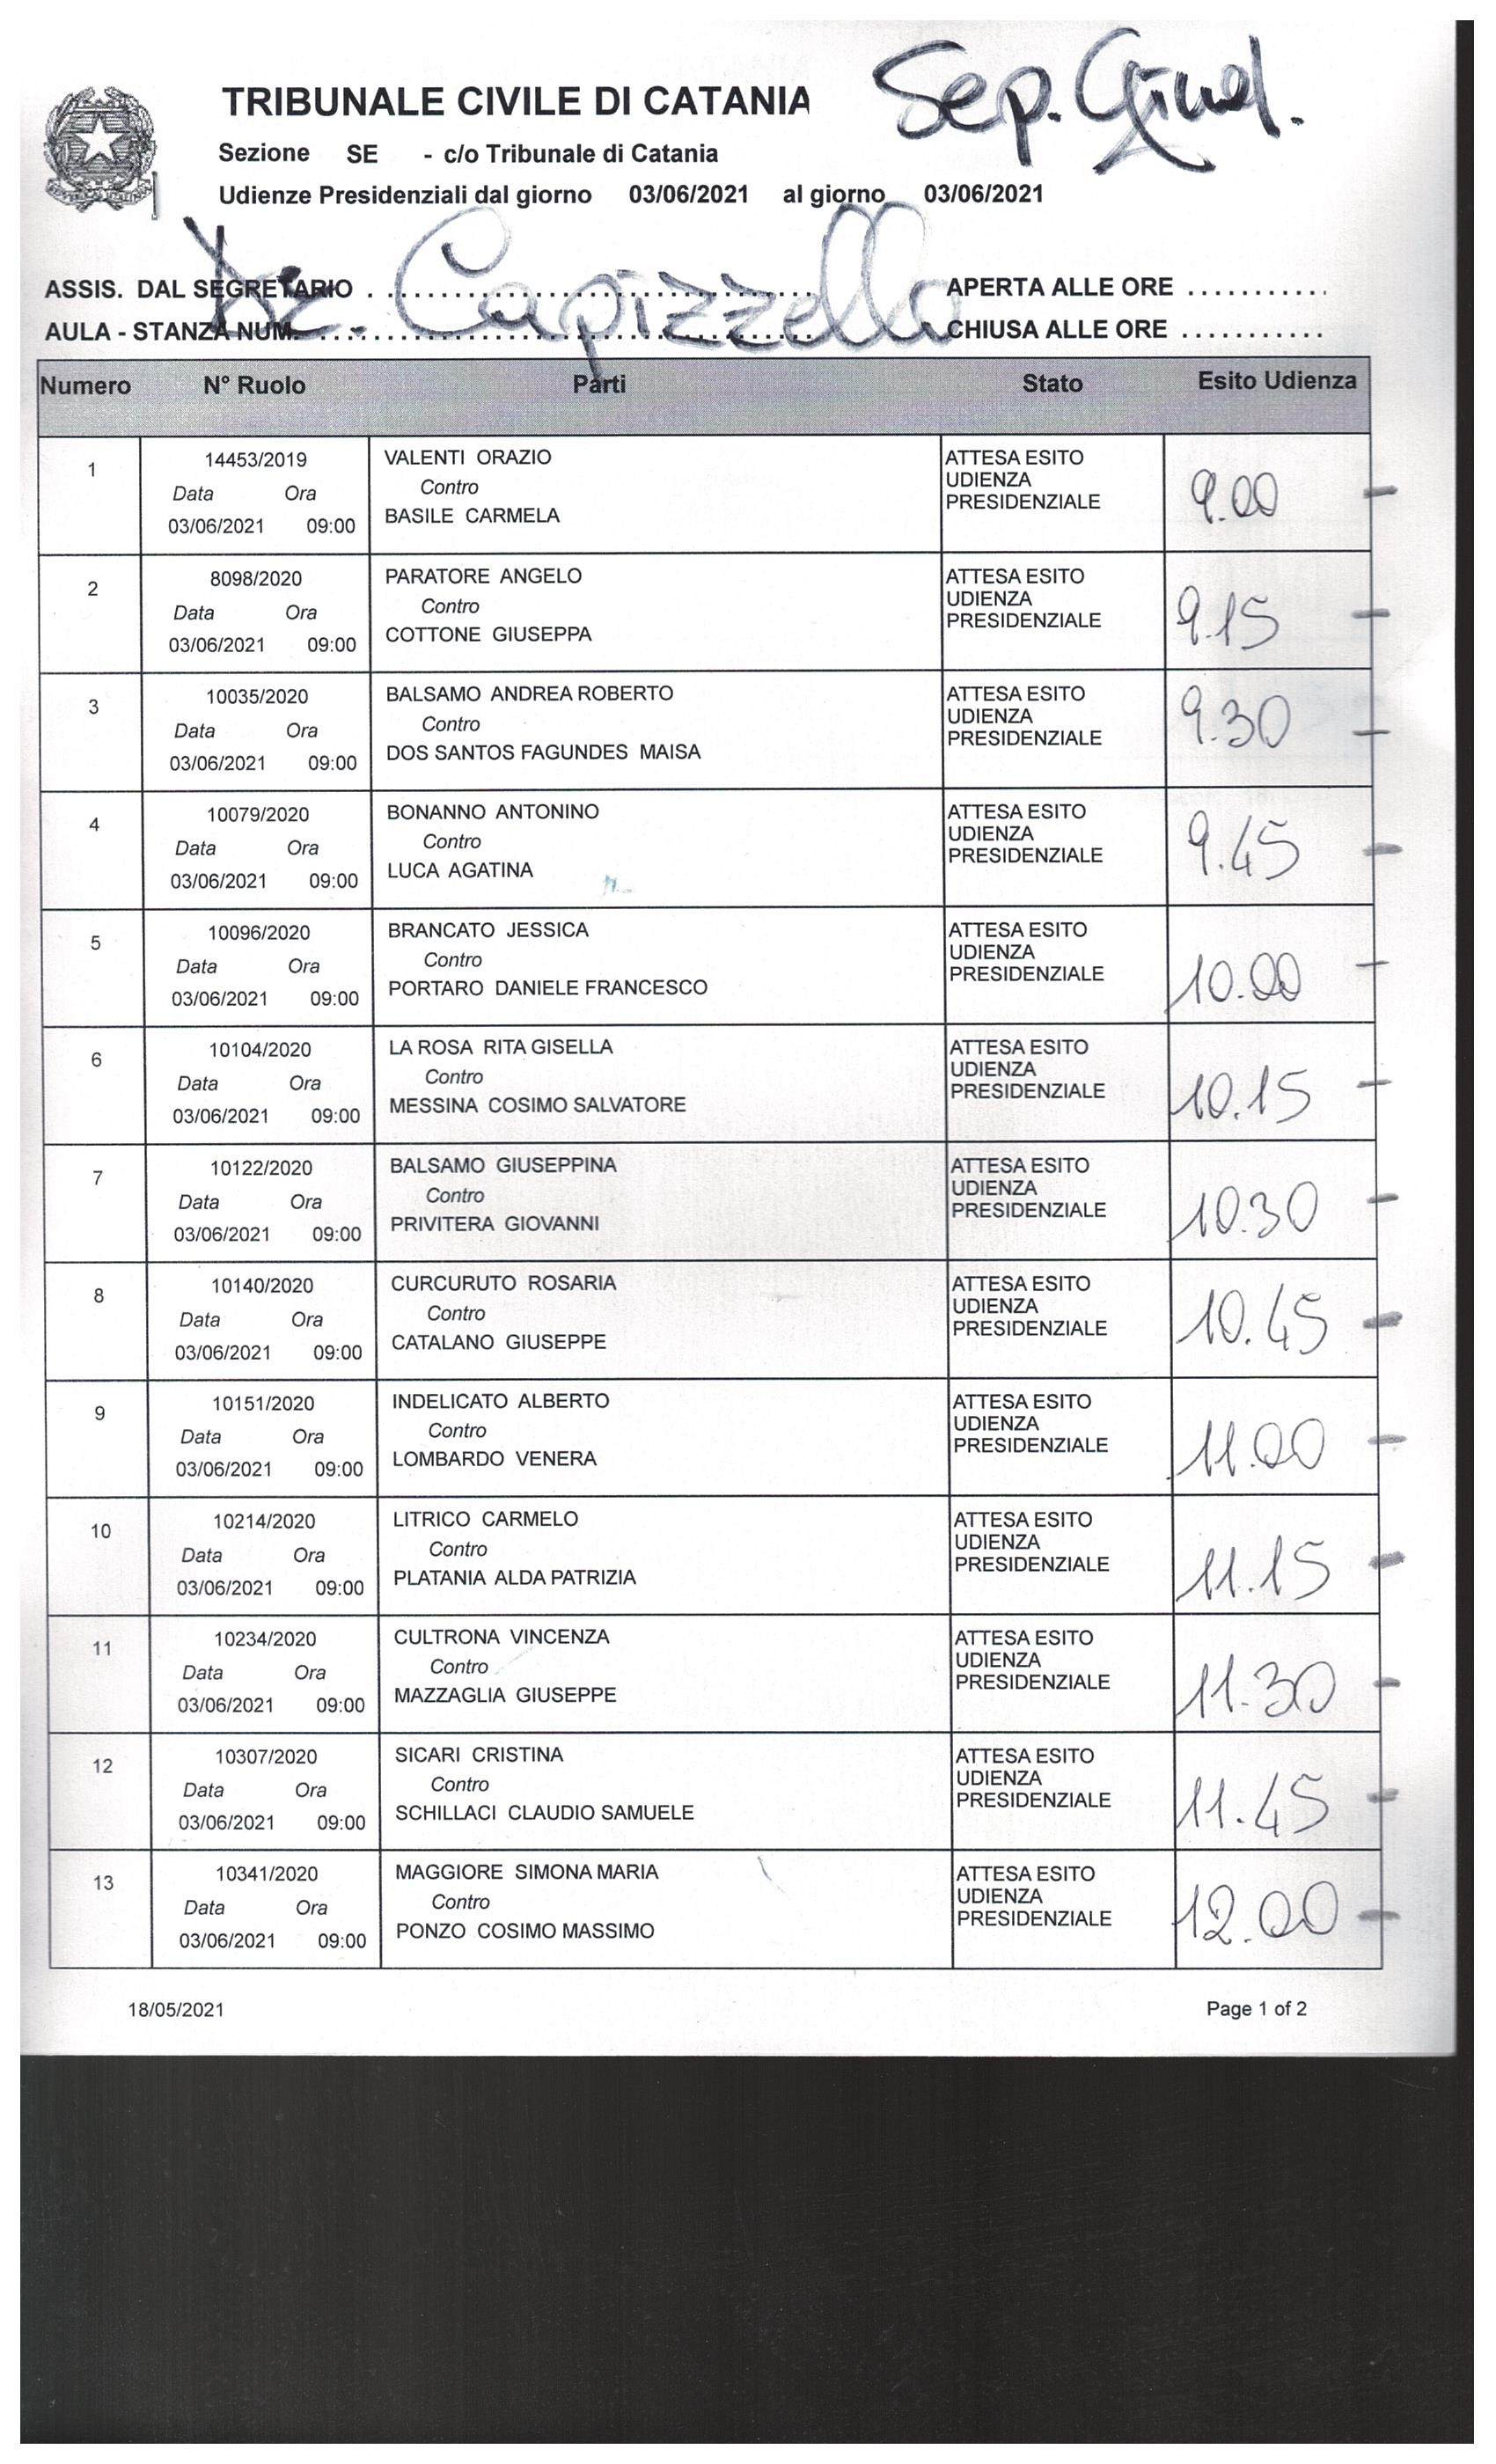 Sep. Giud.
TRIBUNALE CIVILE DI CATANIA
Sezione SE - c/o Tribunale di Catania
Udienze Presidenziali dal giorno 03/06/2021 al giorno 03/06/2021
Capizzello
ASSIS. DAL SEGRETARIO . .......................................... APERTA ALLE ORE ...........
AULA - STANZA NUM. .......................................... CHIUSA ALLE ORE ...........
Numero N° Ruolo Parti Stato Esito Udienza
1 14453/2019 VALENTI ORAZIO ATTESA ESITO
Data Ora Contro UDIENZA 9.00
03/06/2021 09:00 BASILE CARMELA PRESIDENZIALE
2 8098/2020 PARATORE ANGELO ATTESA ESITO
Data Ora Contro UDIENZA 9.15
03/06/2021 09:00 COTTONE GIUSEPPA PRESIDENZIALE
3 10035/2020 BALSAMO ANDREA ROBERTO ATTESA ESITO
Data Ora Contro UDIENZA 9.30
03/06/2021 09:00 DOS SANTOS FAGUNDES MAISA PRESIDENZIALE
4 10079/2020 BONANNO ANTONINO ATTESA ESITO
Data Ora Contro UDIENZA 9.45
03/06/2021 09:00 LUCA AGATINA PRESIDENZIALE
5 10096/2020 BRANCATO JESSICA ATTESA ESITO
Data Ora Contro UDIENZA 10.00
03/06/2021 09:00 PORTARO DANIELE FRANCESCO PRESIDENZIALE
6 10104/2020 LA ROSA RITA GISELLA ATTESA ESITO
Data Ora Contro UDIENZA 10.15
03/06/2021 09:00 MESSINA COSIMO SALVATORE PRESIDENZIALE
7 10122/2020 BALSAMO GIUSEPPINA ATTESA ESITO
Data Ora Contro UDIENZA 10.30
03/06/2021 09:00 PRIVITERA GIOVANNI PRESIDENZIALE
8 10140/2020 CURCURUTO ROSARIA ATTESA ESITO
Data Ora Contro UDIENZA 10.45
03/06/2021 09:00 CATALANO GIUSEPPE PRESIDENZIALE
9 10151/2020 INDELICATO ALBERTO ATTESA ESITO
Data Ora Contro UDIENZA 11.00
03/06/2021 09:00 LOMBARDO VENERA PRESIDENZIALE
10 10214/2020 LITRICO CARMELO ATTESA ESITO
Data Ora Contro UDIENZA 11.15
03/06/2021 09:00 PLATANIA ALDA PATRIZIA PRESIDENZIALE
11 10234/2020 CULTRONA VINCENZA ATTESA ESITO
Data Ora Contro UDIENZA 11.30
03/06/2021 09:00 MAZZAGLIA GIUSEPPE PRESIDENZIALE
12 10307/2020 SICARI CRISTINA ATTESA ESITO
Data Ora Contro UDIENZA 11.45
03/06/2021 09:00 SCHILLACI CLAUDIO SAMUELE PRESIDENZIALE
13 10341/2020 MAGGIORE SIMONA MARIA ATTESA ESITO
Data Ora Contro UDIENZA 12.00
03/06/2021 09:00 PONZO COSIMO MASSIMO PRESIDENZIALE
18/05/2021 Page 1 of 2